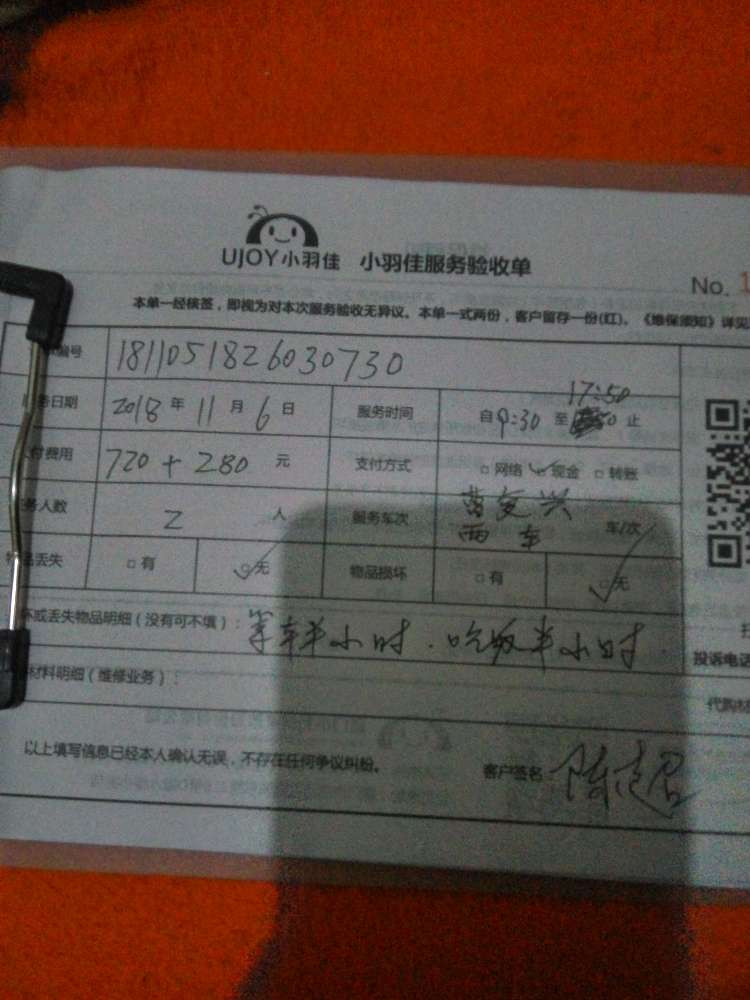 UJOY小羽佳 小羽佳服务验收单
No. 1
本单一经核签，即视为对本次服务验收无异议。本单一式两份，客户留存一份(红)。《维保须知》详见
编号 1811051826030730
务日期 2018 年 11 月 6 日 服务时间 自 9:30 至 17:50 止
付费用 720 + 280 元 支付方式 □网络 ☑现金 □转账
务人数 2 人 服务车次 曹复兴 两车 车/次
物品丢失 □有 ☑无 物品损坏 □有 ☑无
坏或丢失物品明细（没有可不填）： 等车半小时．吃饭半小时
投诉电话
材料明细（维修业务）：
代购材
以上填写信息已经本人确认无误，不存在任何争议纠纷。 客户签名：